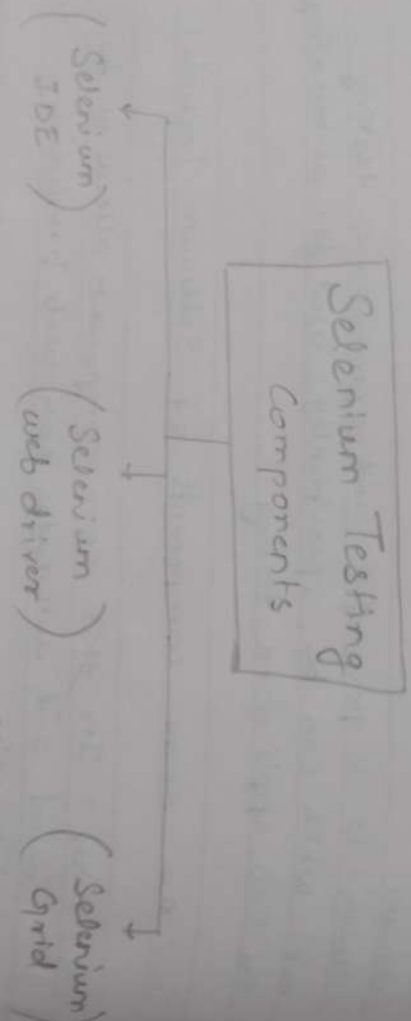 Selenium Testing
Components
(Selenium
IDE)
(Selenium
web driver)
(Selenium
Grid)